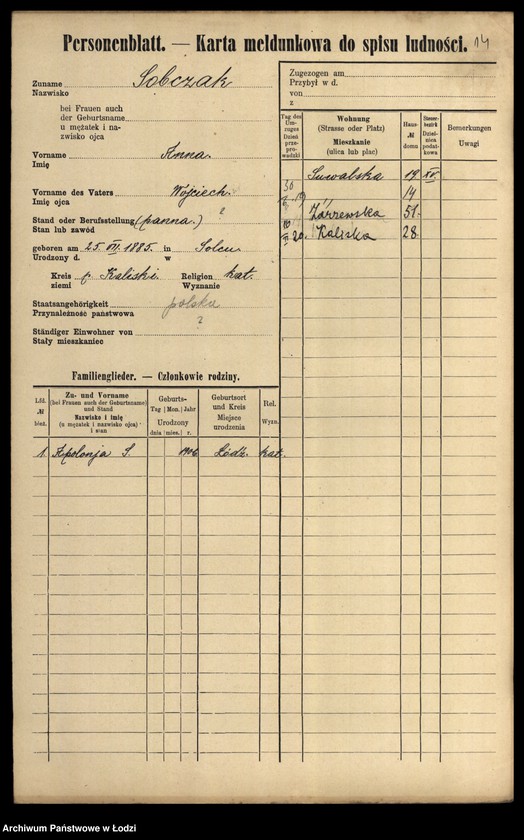 Personenblatt. — Karta meldunkowa do spisu ludności. 14
Zuname Sobczak
Nazwisko
bei Frauen auch
der Geburtsname
u mężatek i na-
zwisko ojca
Vorname Anna.
Imię
Vorname des Vaters Wojciech.
Imię ojca
Stand oder Berufsstellung (panna.) ?
Stan lub zawód
geboren am 25. VII. 1885. in Solcu
Urodzony d. w
Kreis p. Kaliski Religion kat.
ziemi Wyznanie
Staatsangehörigkeit polska
Przynależność państwowa ?
Ständiger Einwohner von
Stały mieszkaniec
Zugezogen am
Przybył w d.
von
z
Tag des Um-zuges Dzień prze-prowadzki
Wohnung
(Strasse oder Platz)
Mieszkanie
(ulica lub plac)
Haus-
№
domu
Steuer-
bezirk
Dziel-
nica
podat-
kowa
Bemerkungen
Uwagi
Suwalska 19. XV.
14
Zarzewska 51.
20. Kaliska 28.
Familienglieder. — Członkowie rodziny.
Lfd.
№
bież.
Zu- und Vorname
(bei Frauen auch der Geburtsname)
und Stand
Nazwisko i imię
(u mężatek i nazwisko ojca)
i stan
Geburts-
Tag Mon. Jahr
Urodzony
dnia mies. r.
Geburtsort
und Kreis
Miejsce
urodzenia
Rel.
Wyzn.
1. Apolonja S. 1906 Łódź. kat.
Archiwum Państwowe w Łodzi